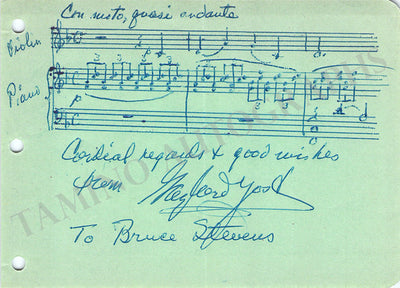 Con moto, quasi andante
Violin
Piano
3 3 3 3
p
Cordial regards & good wishes
from Gaylord Yost
To Bruce Stevens
TAMINO AUTOGRAPHS